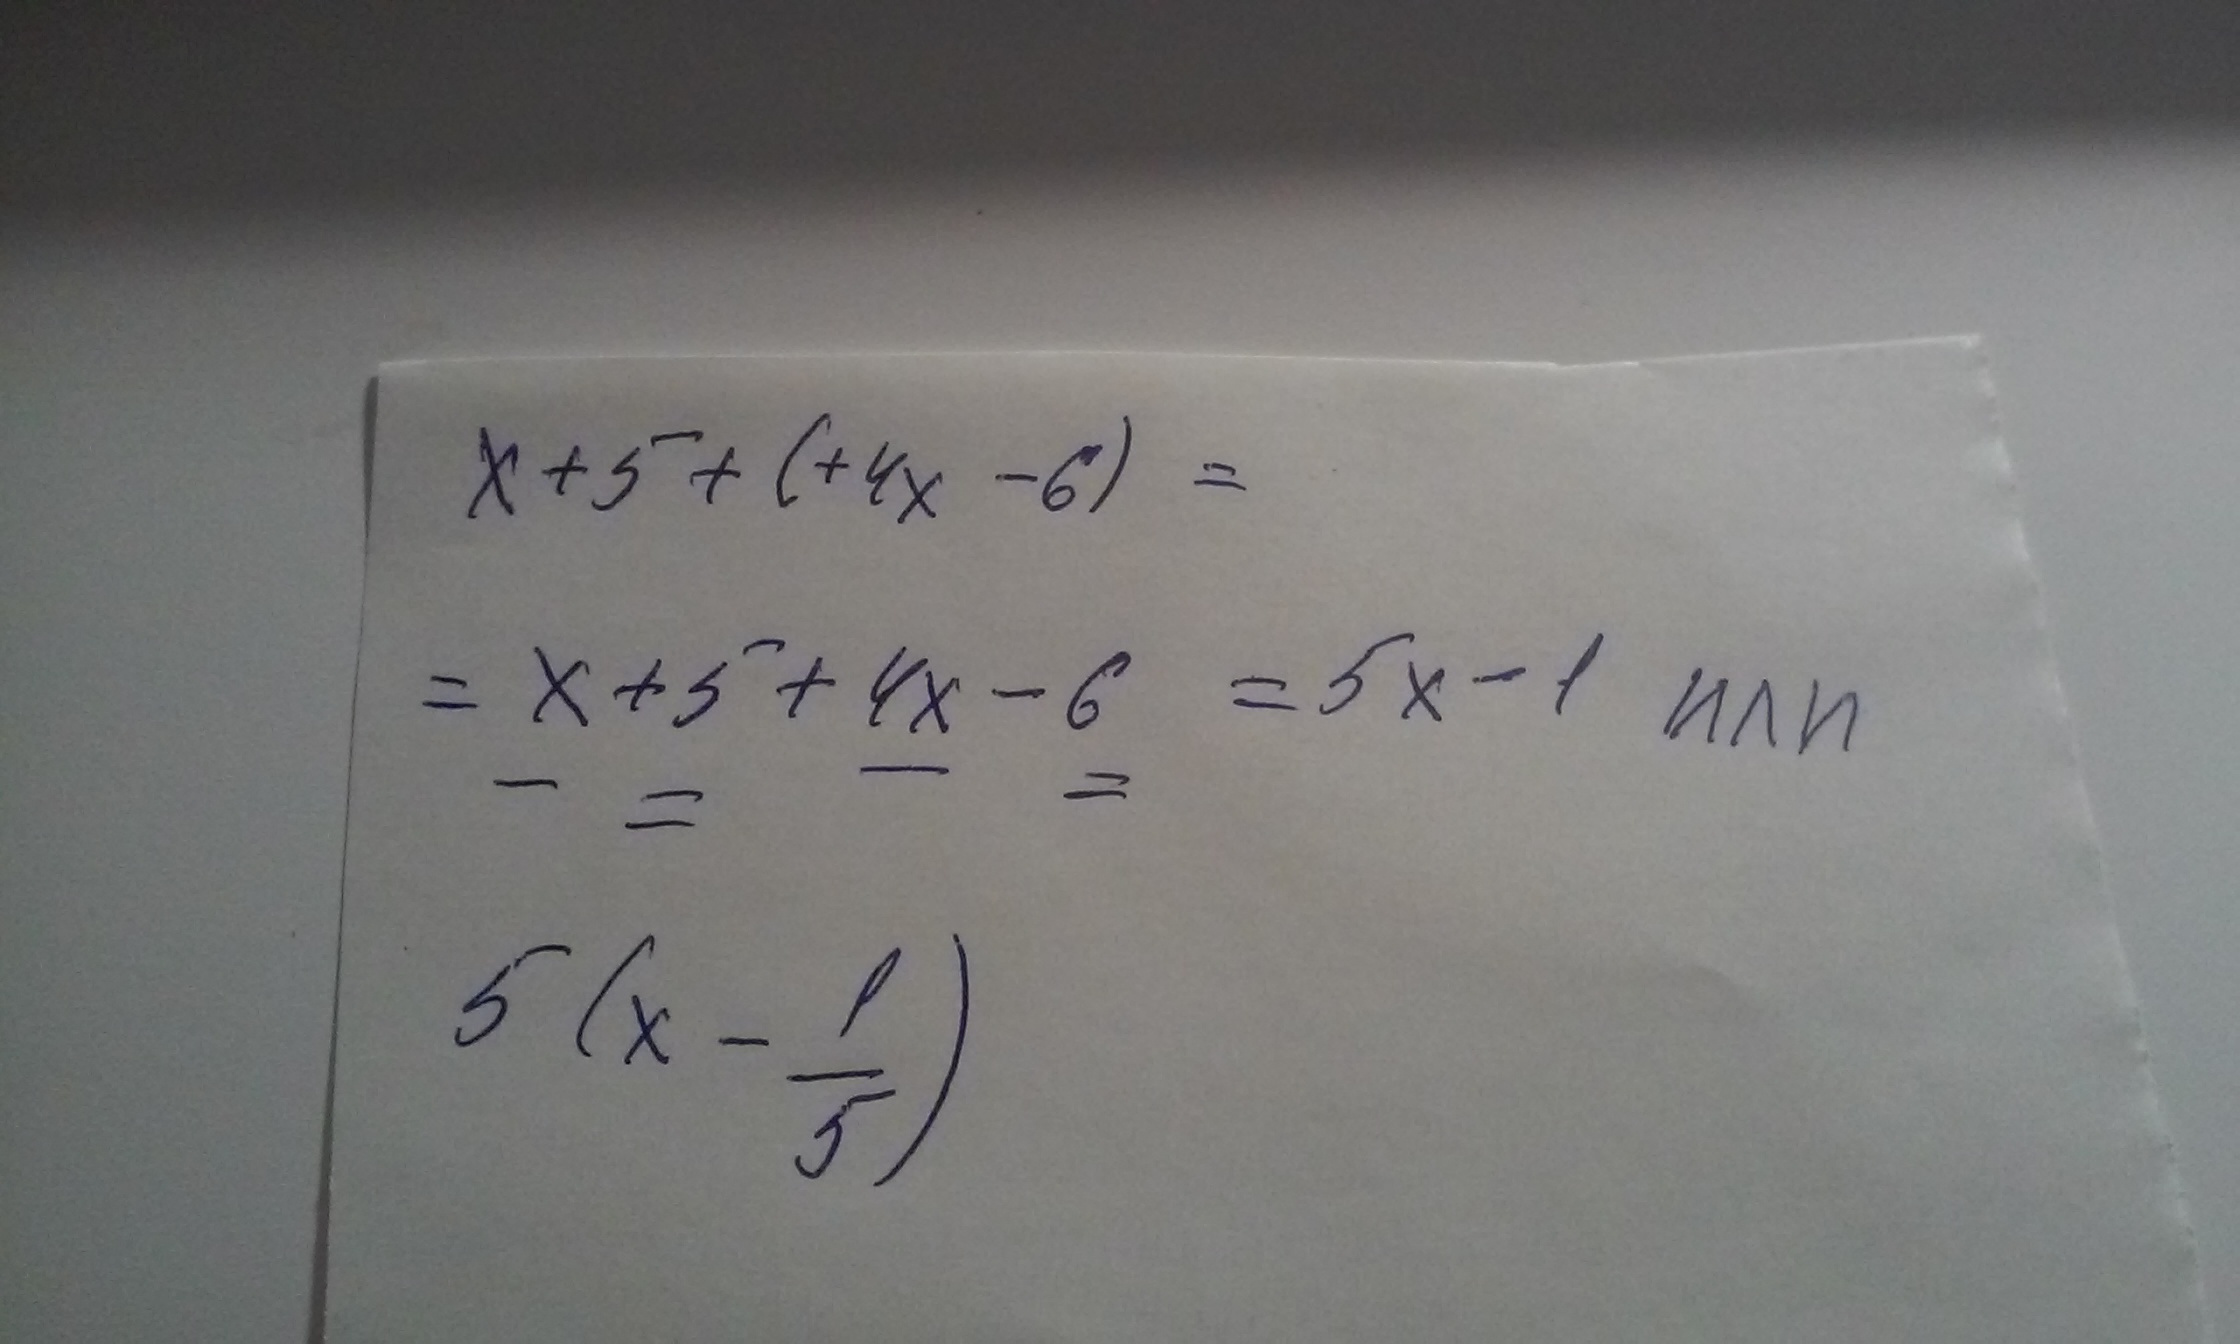 x+5+(+4x-6)=
=x+5+4x-6 =5x-1 или
5(x-1/5)